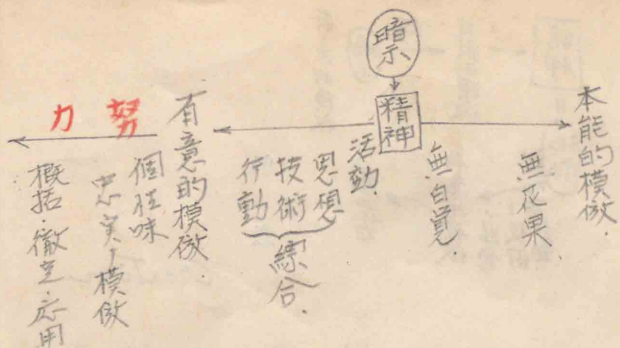 暗示
精神
本能的模倣.
無花果.
無自覚.
活動.
思想
技術
行動
綜合.
有意的模倣.
個性味
忠実ノ模倣
努力
概括.徹立.応用